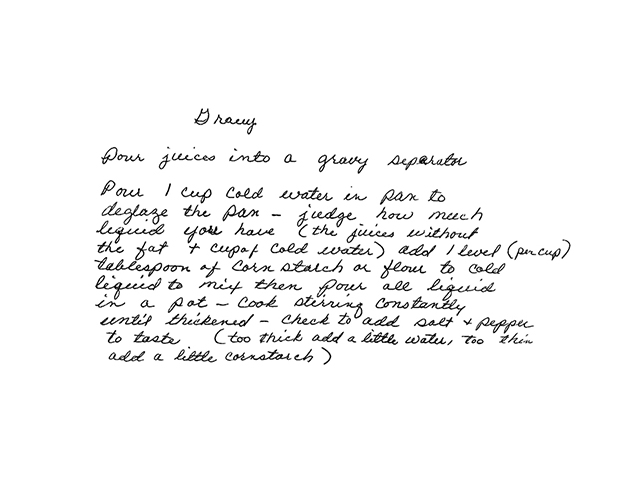 Gravy
Pour juices into a gravy separator
Pour 1 cup cold water in pan to
deglaze the pan - judge how much
liquid you have (the juices without
the fat + cup of cold water) add 1 level (per cup)
tablespoon of corn starch or flour to cold
liquid to mix then pour all liquid
in a pot - cook stirring constantly
until thickened - check to add salt + pepper
to taste (too thick add a little water, too thin
add a little cornstarch)